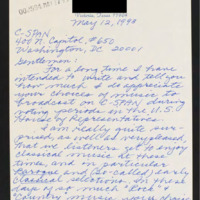 Victoria, Texas 77904
May 12, 1990
C-SPAN
400 N. Capitol, #650
Washington, DC 20001
Gentlemen:
For a long time I have
intended to write and tell you
how much I do appreciate
your choices of music to
broadcast on C-SPAN during
voting periods in the U.S.
House of Representatives.
I am really quite sur-
prised, as well as very pleased,
that we listeners get to enjoy
classical music at those
times, and in particular,
Baroque and (so-called) early
classical selections. In these
days of so much "Rock" &
Country music